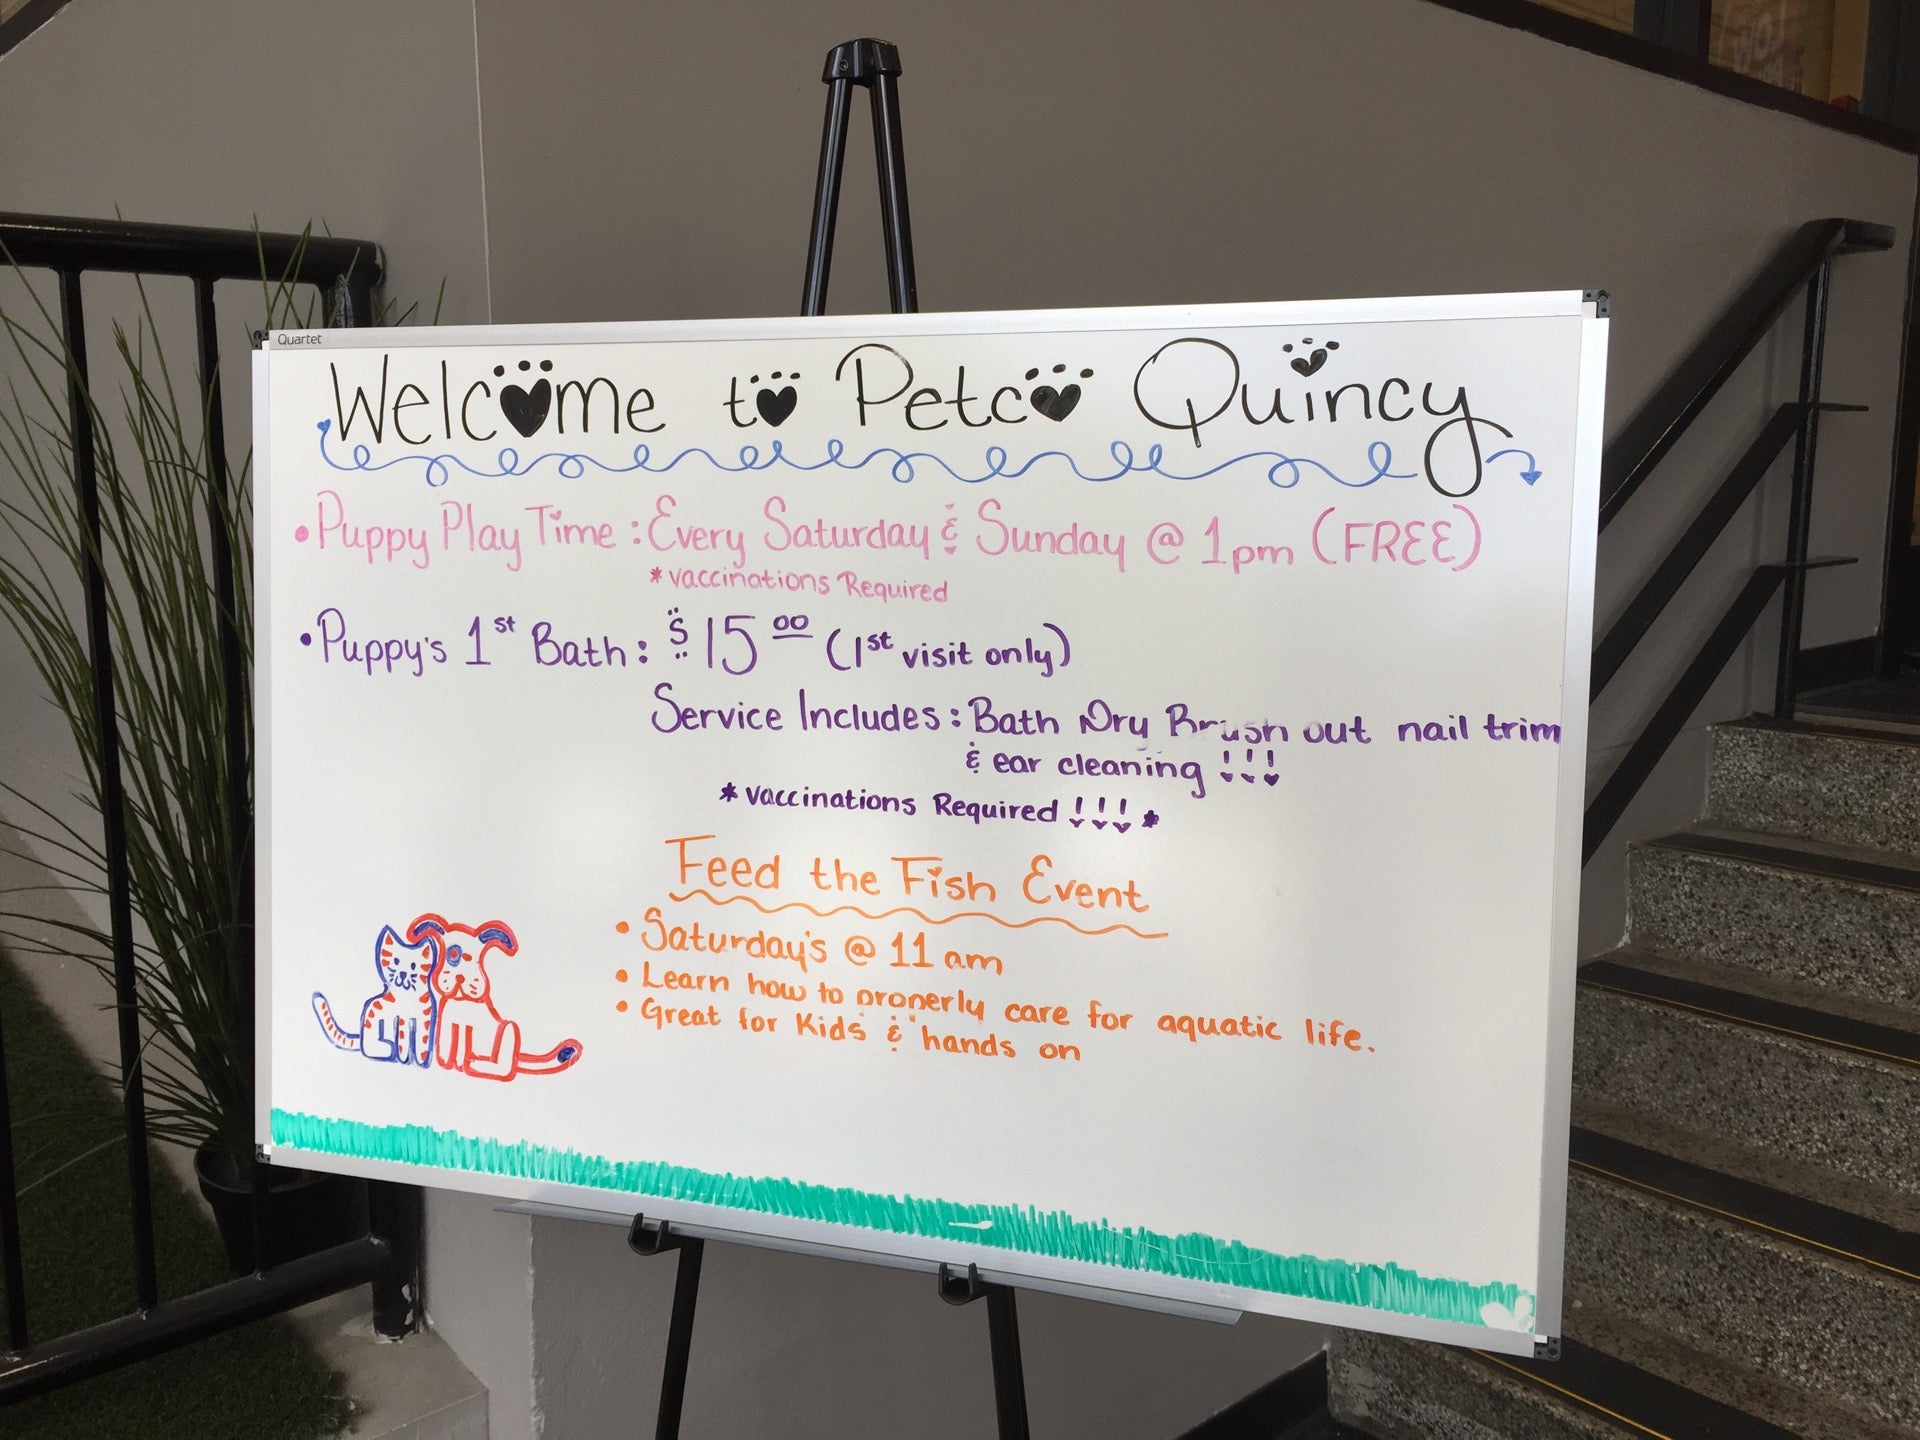 Quartet
Welcome to Petco Quincy
• Puppy Play Time : Every Saturday & Sunday @ 1pm (FREE)
*vaccinations Required
• Puppy's 1st Bath : $15 00 (1st visit only)
Service Includes : Bath Dry Brush out nail trim
& ear cleaning !!!
*vaccinations Required !!! *
Feed the Fish Event
• Saturday's @ 11 am
• Learn how to properly care for aquatic life.
• Great for Kids & hands on